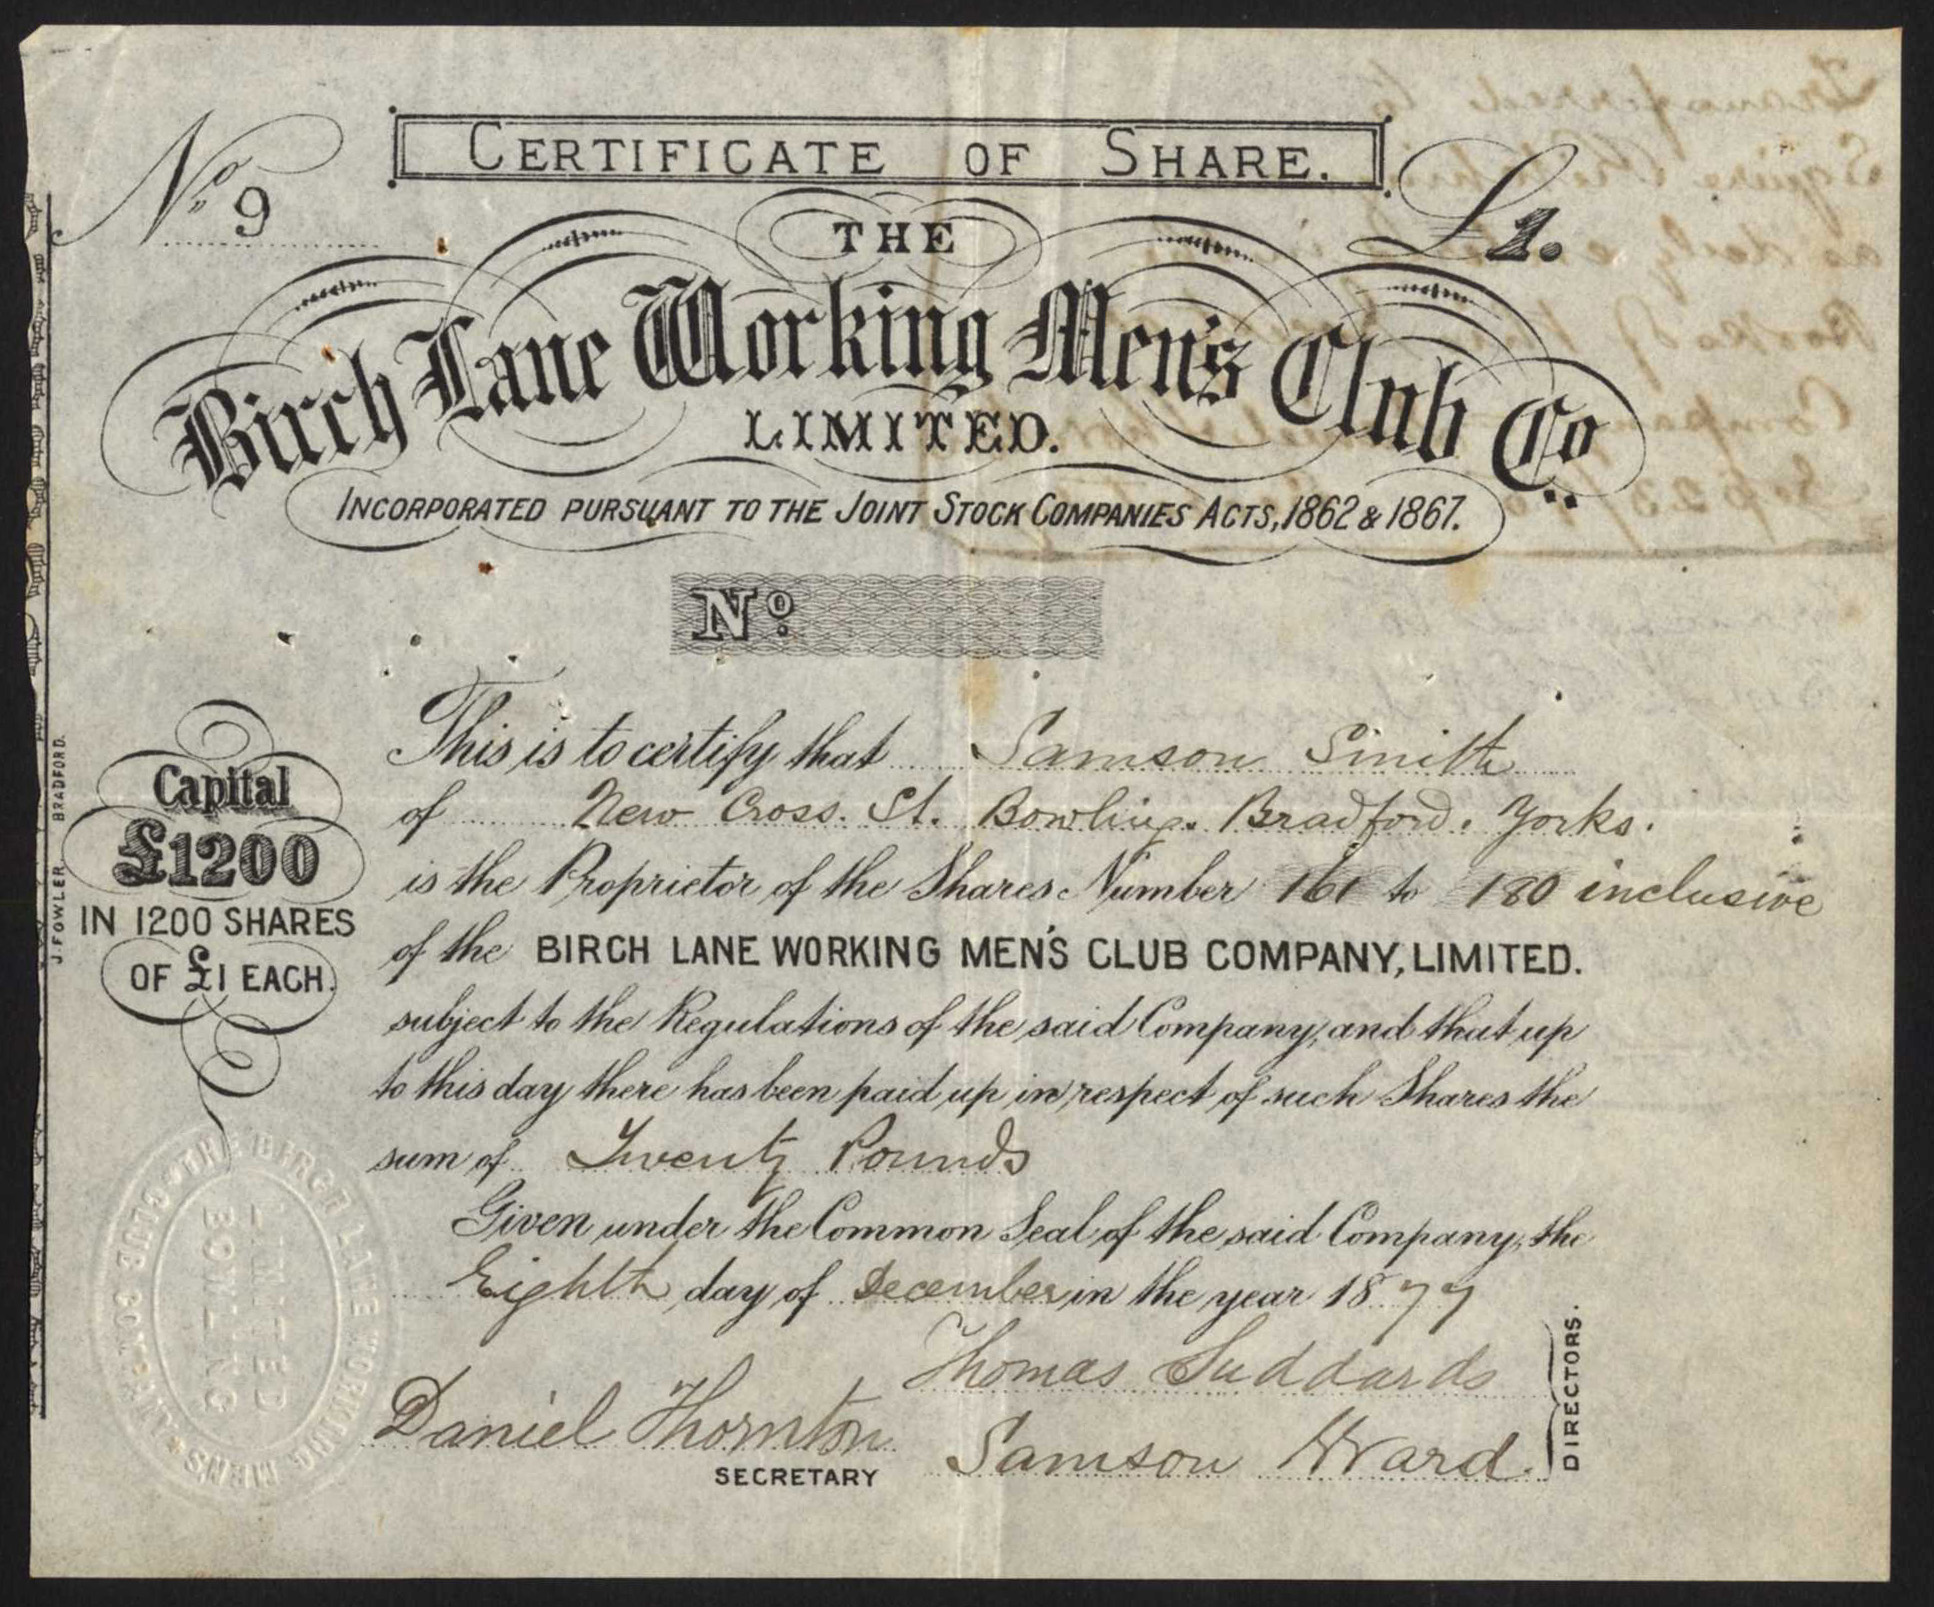 CERTIFICATE OF SHARE.
No. 9
£1.
THE
Birch Lane Working Men's Club Co.
LIMITED.
INCORPORATED PURSUANT TO THE JOINT STOCK COMPANIES ACTS, 1862 & 1867.
No.
This is to certify that Samson Smith
of New Cross. St. Bowling. Bradford. Yorks.
is the Proprietor of the Shares Number 161 to 180 inclusive
of the BIRCH LANE WORKING MEN'S CLUB COMPANY, LIMITED.
subject to the Regulations of the said Company, and that up
to this day there has been paid up in respect of such Shares the
sum of Twenty Pounds
Given under the Common Seal of the said Company, the
Eighth day of December in the year 1877
Thomas Suddards
Daniel Thornton
Samson Ward.
SECRETARY
DIRECTORS.
Capital
£1200
IN 1200 SHARES
OF £1 EACH.
J. FOWLER BRADFORD.
THE BIRCH LANE WORKING MENS CLUB COMPANY
LIMITED
BOWLING
Transferred to
Squire
Company